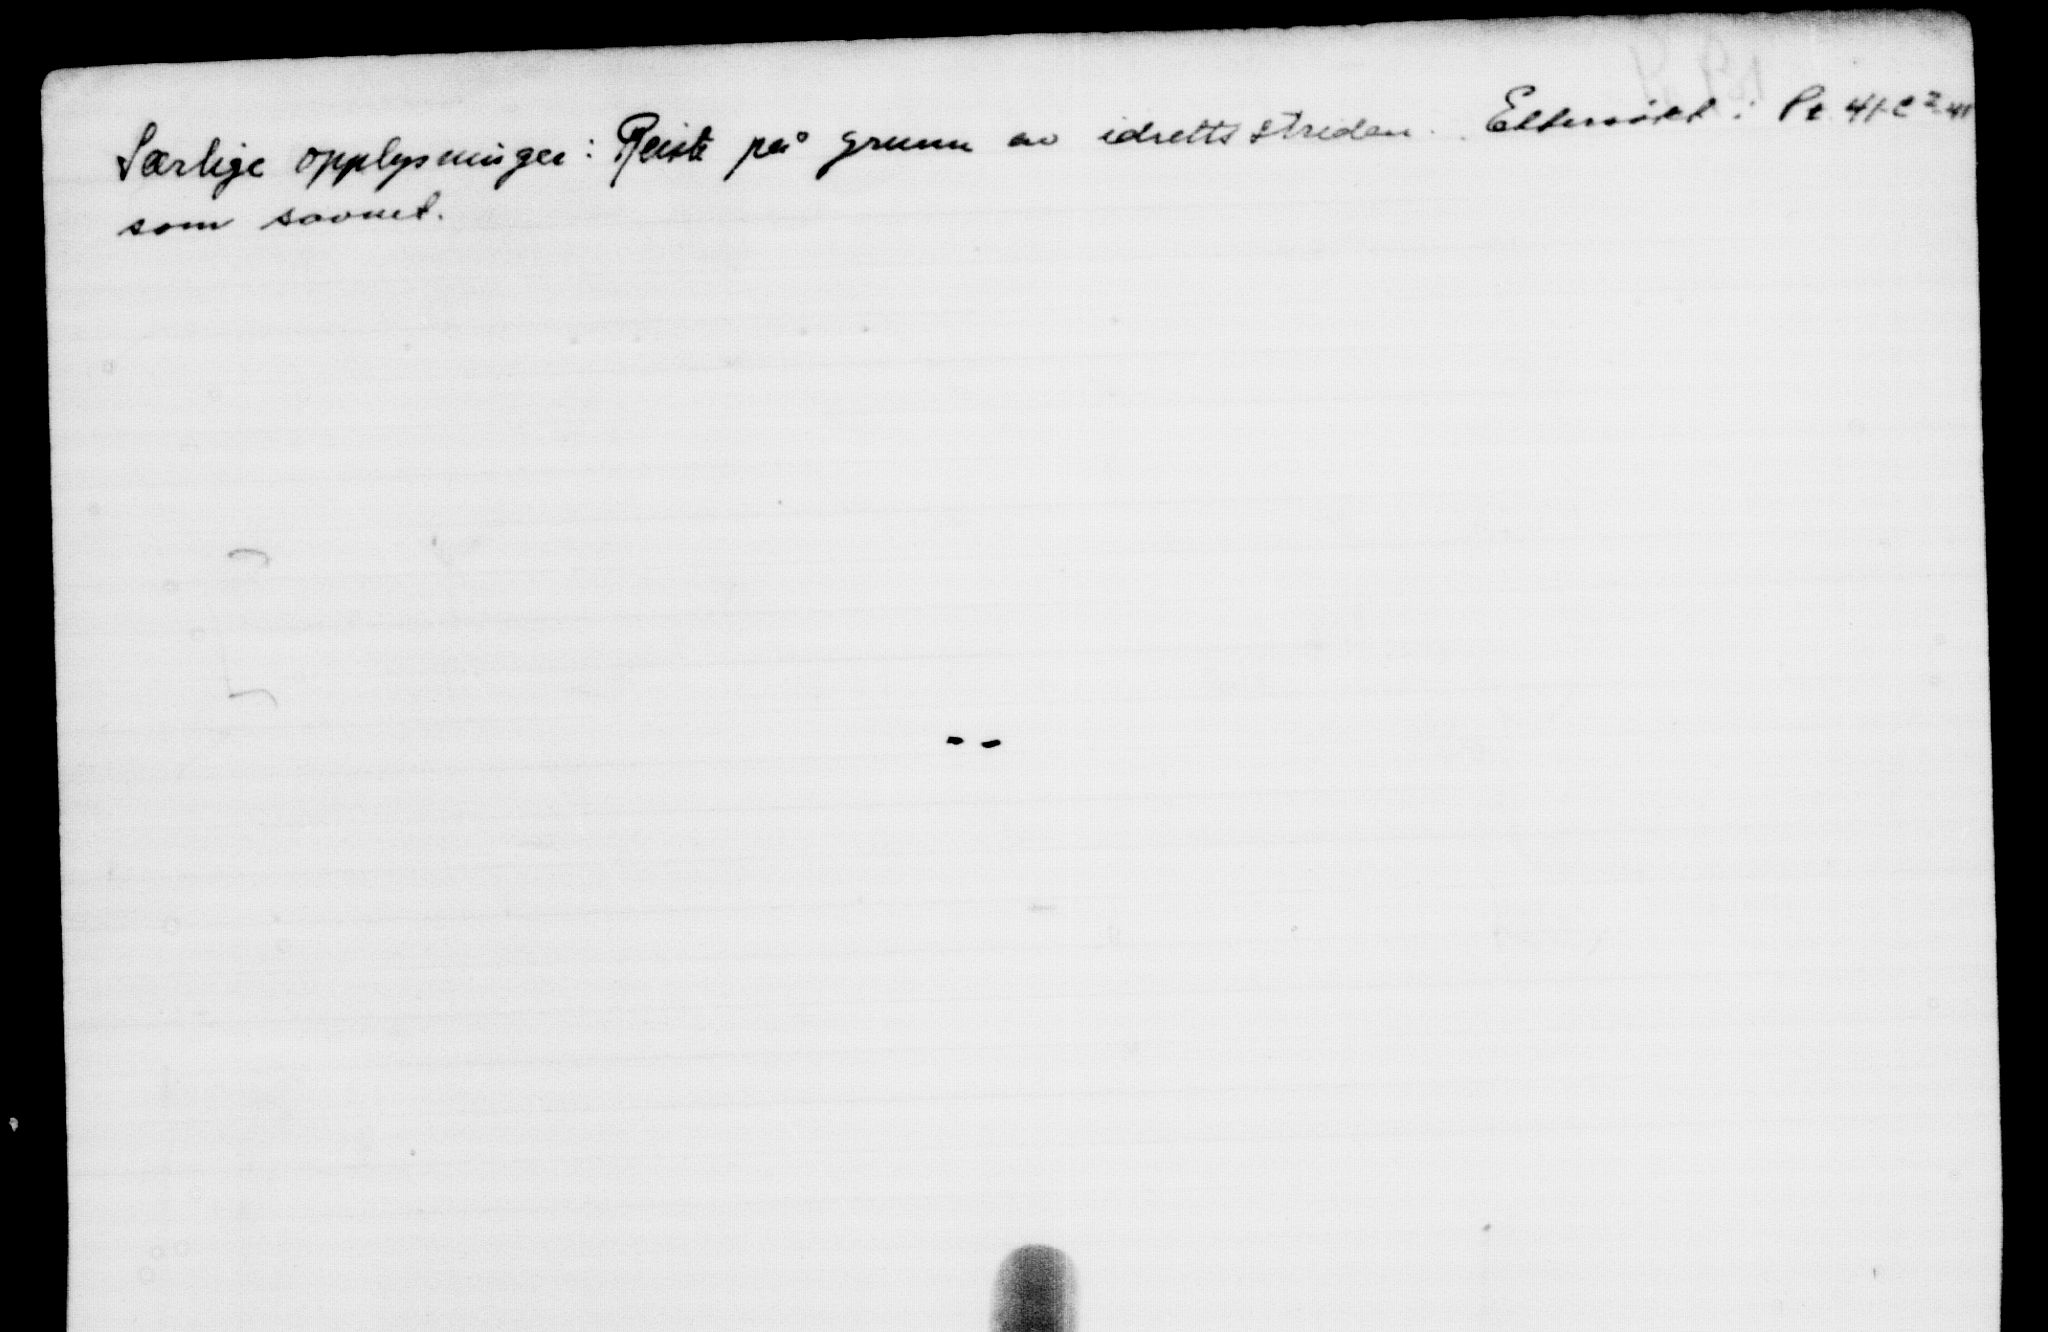 Særlige opplysninger: Reiste på grunn av idrettsstriden. Ettersøkt i
som savnet.